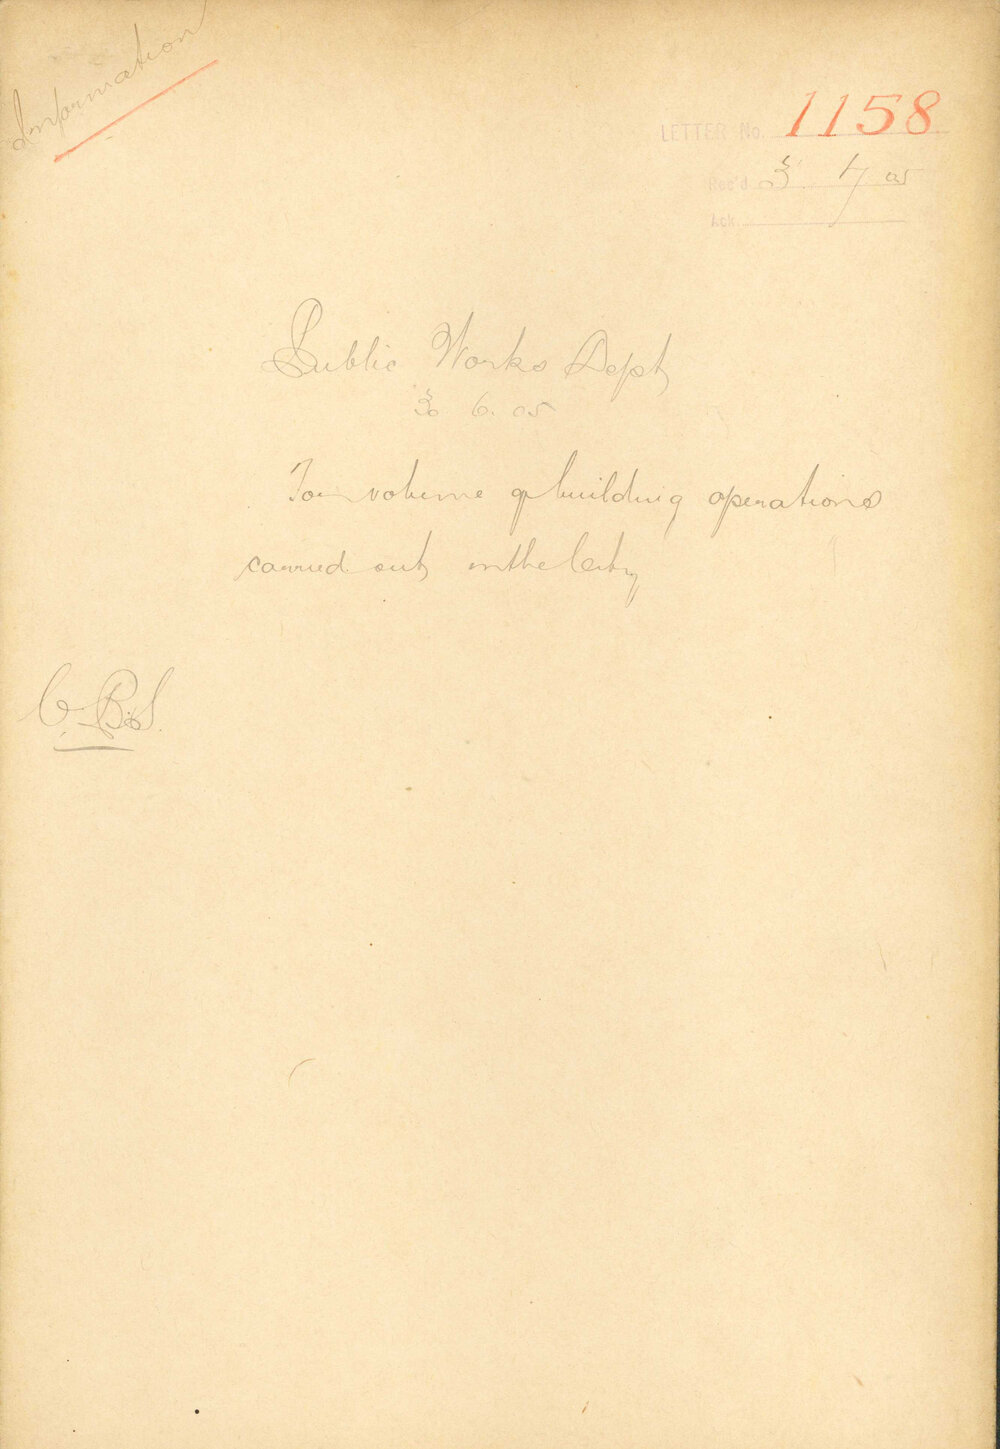 Information
LETTER No. 1158
Rec'd 3 7 05
Ack.
Public Works Dept
30 6. 05
For volume of building operations
carried out in the City
C. B. S.